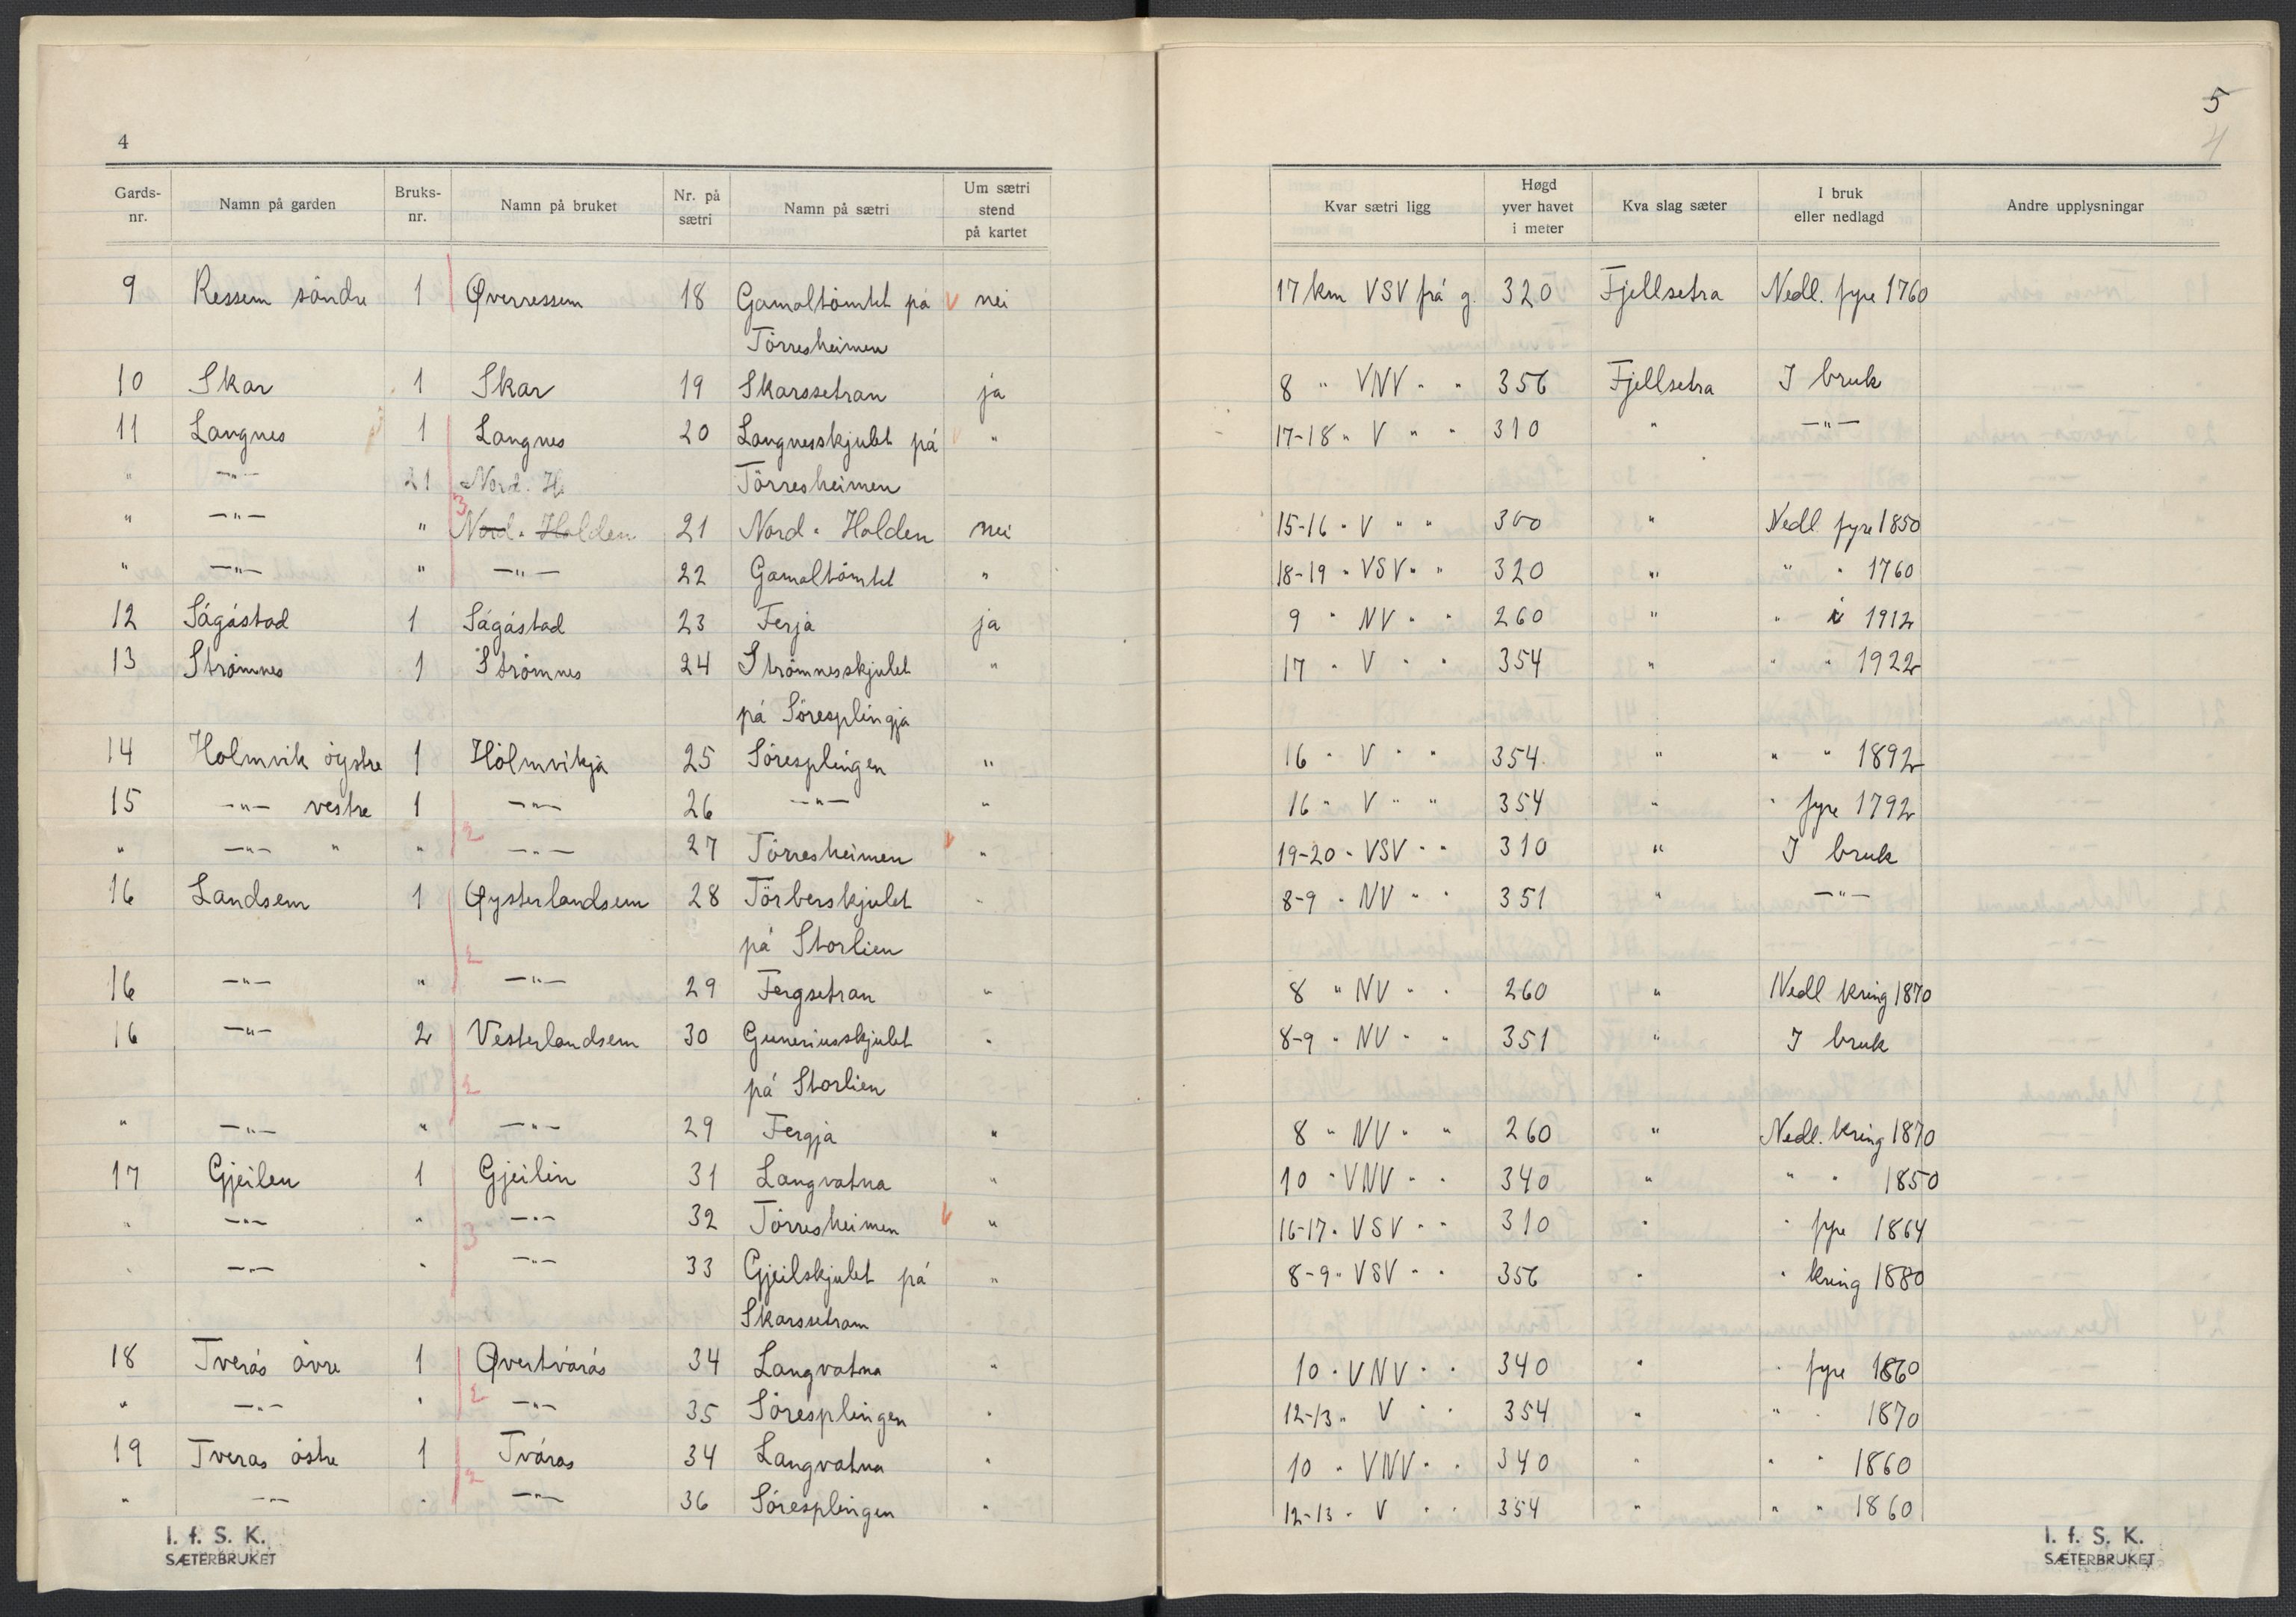 4
Gards-nr. Namn på garden Bruks-nr. Namn på bruket Nr. på sætri Namn på sætri Um sætri stend på kartet
9 Ressem söndre 1 Øverressem 18 Gamaltömtet på V nei
Törresheimen
10 Skar 1 Skar 19 Skarssetran ja
11 Langnes 1 Langnes 20 Langnesskjulet på V "
" —"— 21 Nord. H Törresheimen
" —"— " Nord. Holden 21 Nord. Holden nei
3
" —"— " —"— 22 Gamaltömtet "
12 Sågåstad 1 Sågåstad 23 Ferja ja
13 Strömnes 1 Strömnes 24 Strömnesskjulet "
på Söresplingja
14 Holmvik öystre 1 Hölmvikja 25 Söresplingen "
15 —"— vestre 1 —"— 26 —"— "
2
" —"— " " —"— 27 Törresheimen V "
16 Landsem 1 Øysterlandsem 28 Törberskjulet "
2 på Storlien
16 —"— " —"— 29 Fergsetran "
16 —"— 2 Vesterlandsem 30 Guneriusskjulet "
2 på Storlien
" —"— " —"— 29 Fergja "
17 Gjeilen 1 Gjeilin 31 Langvatna "
" —"— " —"— 32 Törresheimen V "
3
" —"— " —"— 33 Gjeilskjulet på "
Skarssetram
18 Tverås övre 1 Øvertvårås 34 Langvatna "
2
" —"— " —"— 35 Söresplingen "
19 Tveras östre 1 Tvåras 34 Langvatna "
2
" —"— " —"— 36 Söresplingen "
I. f. S. K.
SÆTERBRUKET
5
4
Kvar sætri ligg Høgd yver havet i meter Kva slag sæter I bruk eller nedlagd Andre upplysningar
17 km VSV frå g. 320 Fjellsetra Nedl. fyre 1760
8 " VNV " " 356 Fjellsetra I bruk
17-18 " V " " 310 " —"—
15-16 " V " " 300 " Nedl fyre 1850
18-19 " VSV " " 320 " " " 1760
9 " NV " " 260 " " i 1912
17 " V " " 354 " " " 1922
16 " V " " 354 " " " 1892
16 " V " " 354 " " fyre 1792
19-20 " VSV " " 310 " I bruk
8-9 " NV " " 351 " —"—
8 " NV " " 260 " Nedl kring 1870
8-9 " NV " " 351 " I bruk
8 " NV " " 260 " Nedl. kring 1870
10 " VNV " " 340 " " " 1850
16-17 " VSV " " 310 " " fyre 1864
8-9 " VSV " " 356 " " kring 1880
10 " VNV " " 340 " " fyre 1860
12-13 " V " " 354 " " " 1870
10 " VNV " " 340 " " " 1860
12-13 " V " " 354 " " " 1860
I. f. S. K.
SÆTERBRUKET